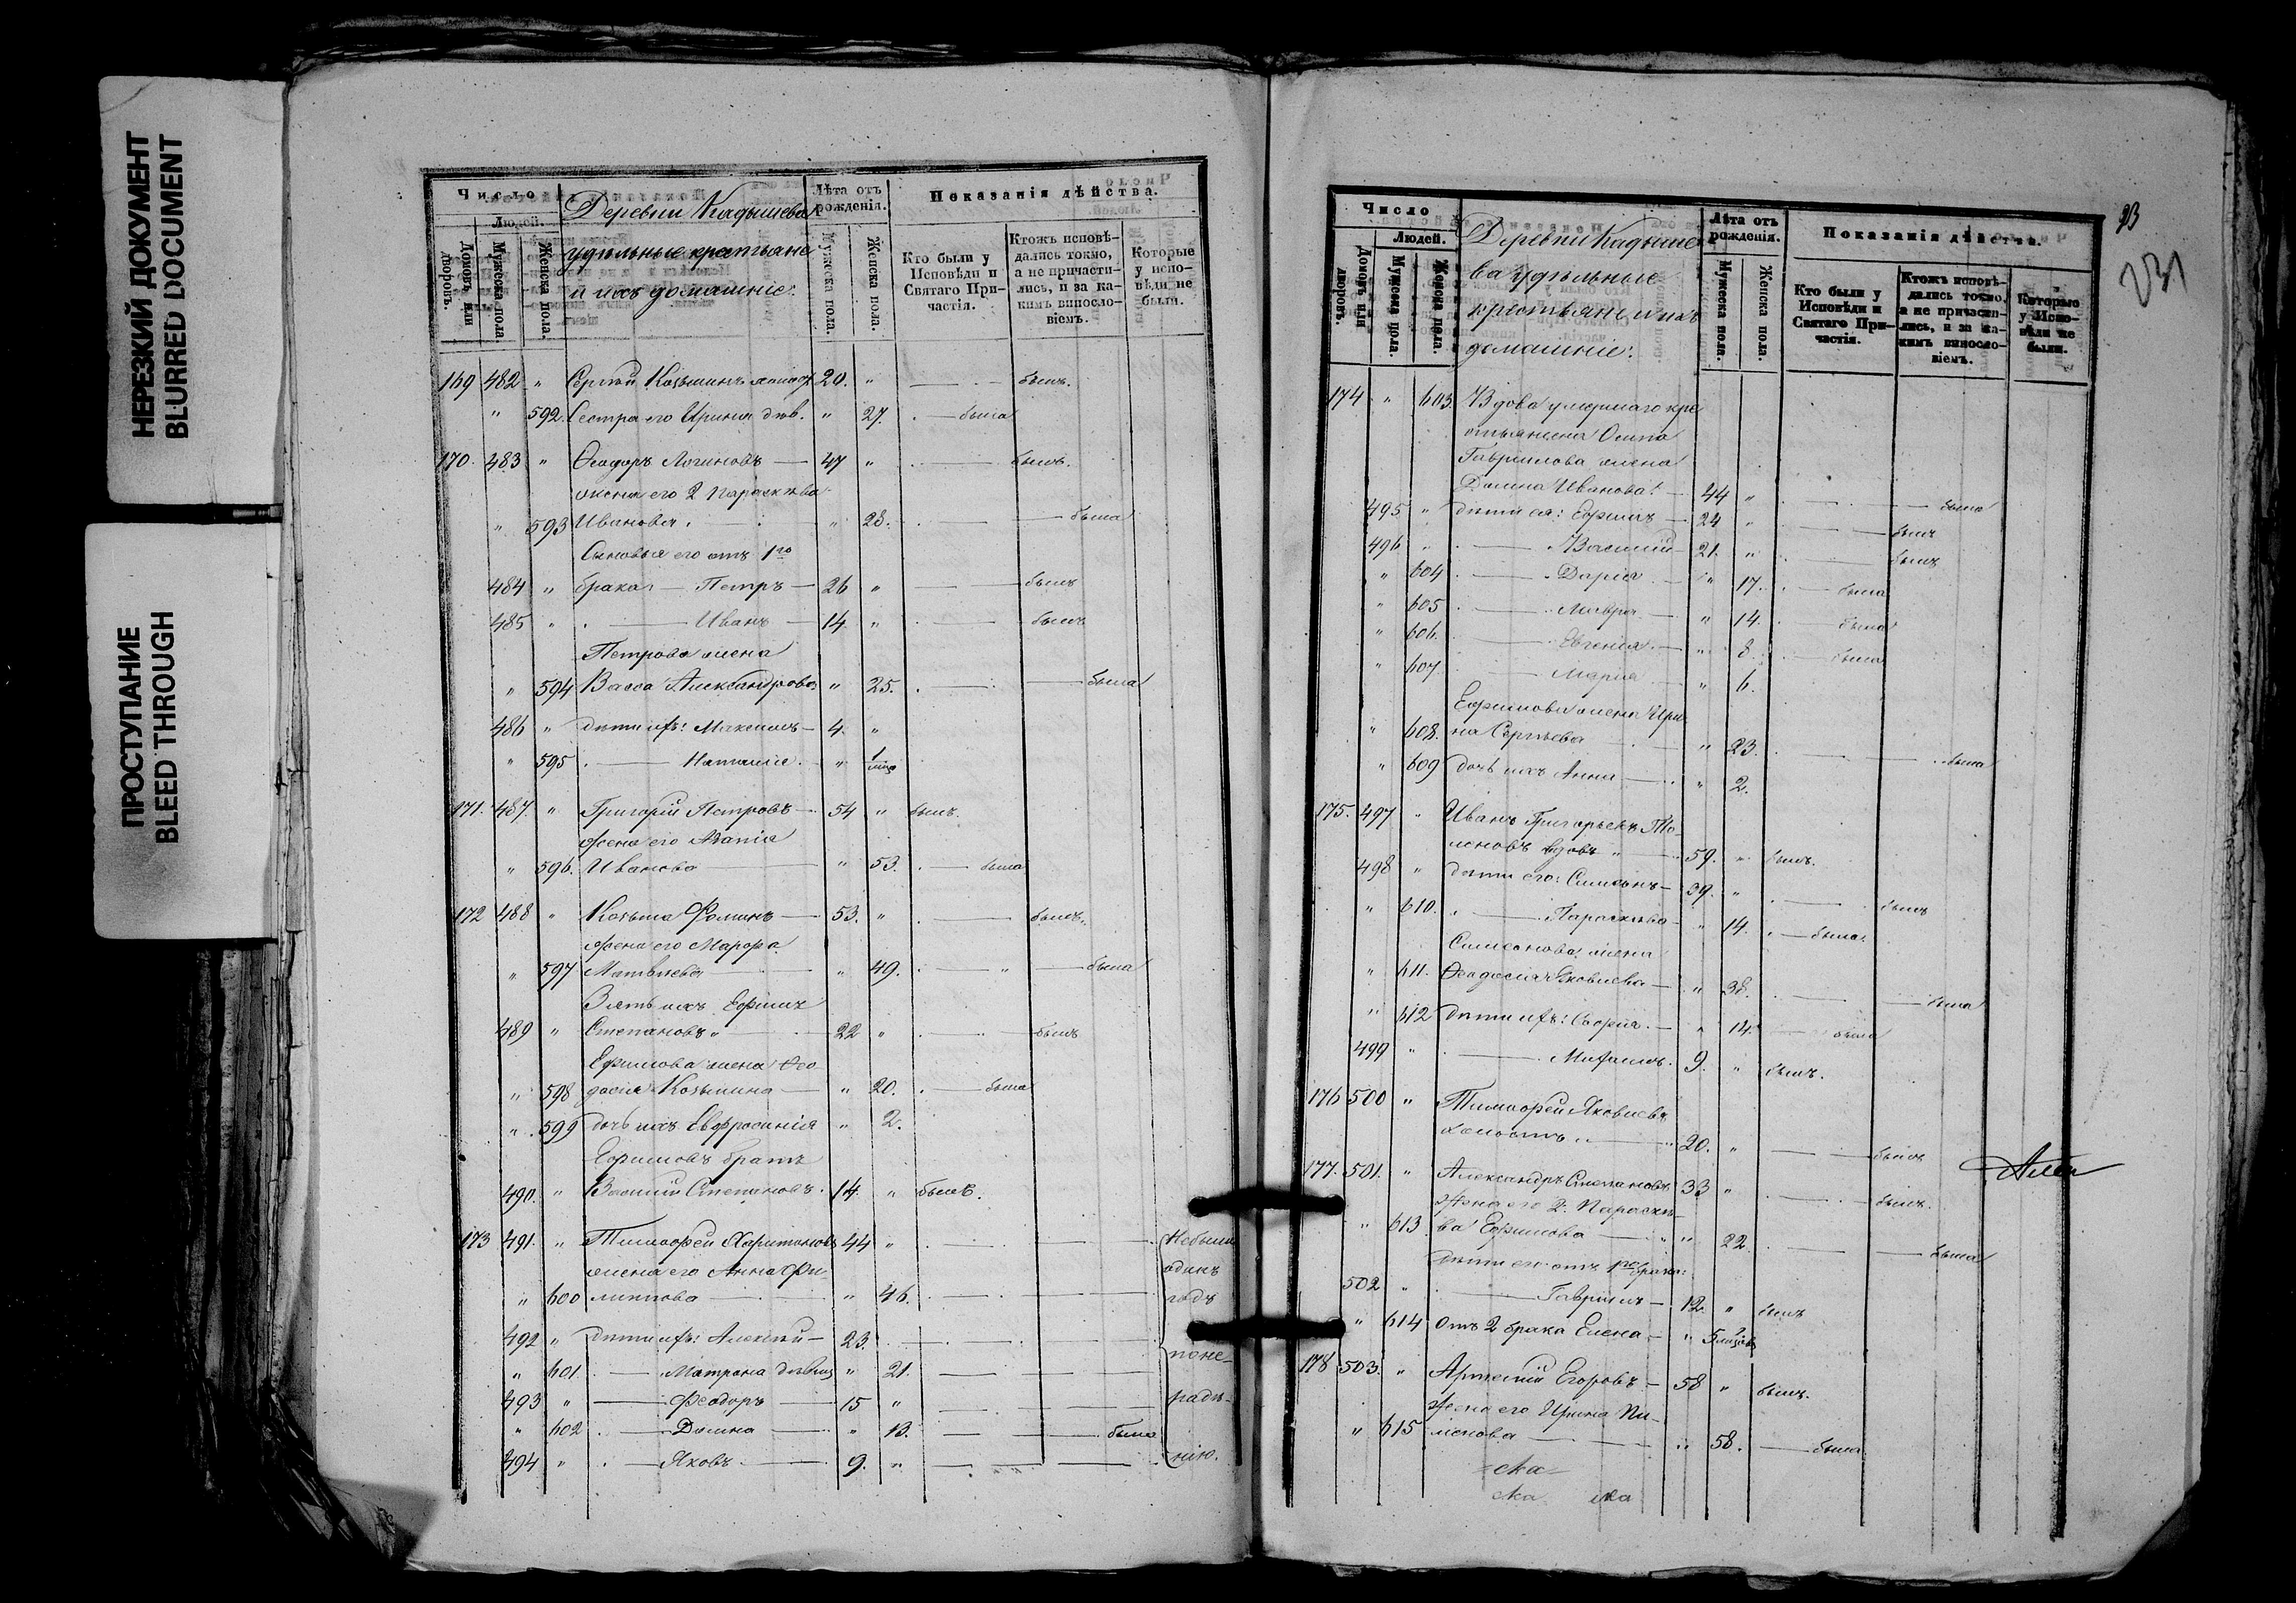 НЕРЕЗКИЙ ДОКУМЕНТ
BLURRED DOCUMENT
ПРОСТУПАНИЕ
BLEED THROUGH
Число
Людей.
Домовъ или дворовъ.
Мужеска пола
Женска пола.
Деревни Кадышева
удѣльные крестьяне
и ихъ домашніе:
Лѣта отъ рожденія.
Мужеска пола.
Женска пола.
Показанія дѣйства.
Кто были у Исповѣди и Святаго Причастія.
Ктожъ исповѣдались токмо, а не причастились, и за какимъ винословіемъ.
Которые у исповѣди не были.
169 482 " Сергѣй Козьминъ холост 20. " былъ.
" 592. Сестра его Ирина дѣв. " 27. была
170. 483 " Ѳеодоръ Логиновъ 47 " былъ.
жена его 2 Параскѣва
" 593 Иванова " 28. была
Сыновья его отъ 1го
484 " брака: Петръ 26 " былъ
485 " Иванъ 14. " былъ
Петрова жена
" 594 Васса Александрова " 25. была
486 " дѣти ихъ: Максимъ 4. "
" 595 Наталія "
171. 487. " Григорій Петровъ 54 " былъ.
жена его
" 596. Иванова " 53. была
172 488 " Козьма Фоминъ 53. " былъ.
жена его Марѳа
" 597 Матвѣева " 49. " была
Зять ихъ Ефимъ
489 " Степановъ 22 " былъ
Ефимова жена Ѳео
" 598 досія Козьмина " 20. была
" 599 дочь ихъ Евфросинія " 2.
Ефимовъ братъ
490. " Василій Степановъ 14. " былъ.
173 491. " Тимоѳей Харитоновъ 44 " Не были
жена его Анна Фи- одинъ
" 600 липпова " 46. годъ
492 " дѣти ихъ: Алексѣй 23.
" 601. Матрона дѣвица " 21. по не-
493 " Ѳеодоръ 15 " радѣ-
" 602 Домна " 13. была
494 " Яковъ 9. " нію.
23
231
Число
Людей.
Домовъ или дворовъ.
Мужеска пола.
Женска пола.
Деревни Кадыше
ва удѣльные
крестьяне и ихъ
домашніе:
Лѣта отъ рожденія.
Мужеска пола.
Женска пола.
Показанія дѣйства.
Кто были у Исповѣди и Святаго Причастія.
Ктожъ исповѣдались токмо, а не причастились, и за какимъ винословіемъ.
Которые у Исповѣди не были.
174 " 603. Вдова умершаго кре
стьянина Осипа
Гавріилова жена
Домна Иванова: 44 " была
495 " дѣти ея: Ефимъ 24 " былъ
496 " Василій 21. " былъ
" 604 Дарія " 17. была
" 605 Мавра " 14. была
" 606. Евгенія " 8. была
" 607 Марія " 6.
Ефимова жена Ири
" 608. на Сергѣева " 23. была
" 609 дочь ихъ Анна " 2.
175. 497 " Иванъ Григорьевъ
вдовъ 59. " былъ.
498 " дѣти его: Симеонъ 39. " былъ
" 610. Параскѣва " 14. была.
Симеонова жена
" 611. Ѳеодосія Яковлева " 38. была
" 612 дѣти ихъ: Софія " 14. была
499 " Михаилъ 9. " былъ.
176 500 " Тимоѳей Яковлевъ
холостъ 20. " былъ
177. 501. " Александръ Степановъ 33 " былъ.
Жена его 2. Параскѣ
" 613 ва Ефимова " 22. была
Дѣти его отъ 1го брака:
502 " Гавріилъ 12. " былъ
" 614 Отъ 2 брака Елена " 5
178 503. " Артемій Егоровъ 58 " былъ.
Жена его Ирина Пи-
" 615 менова " 58. была